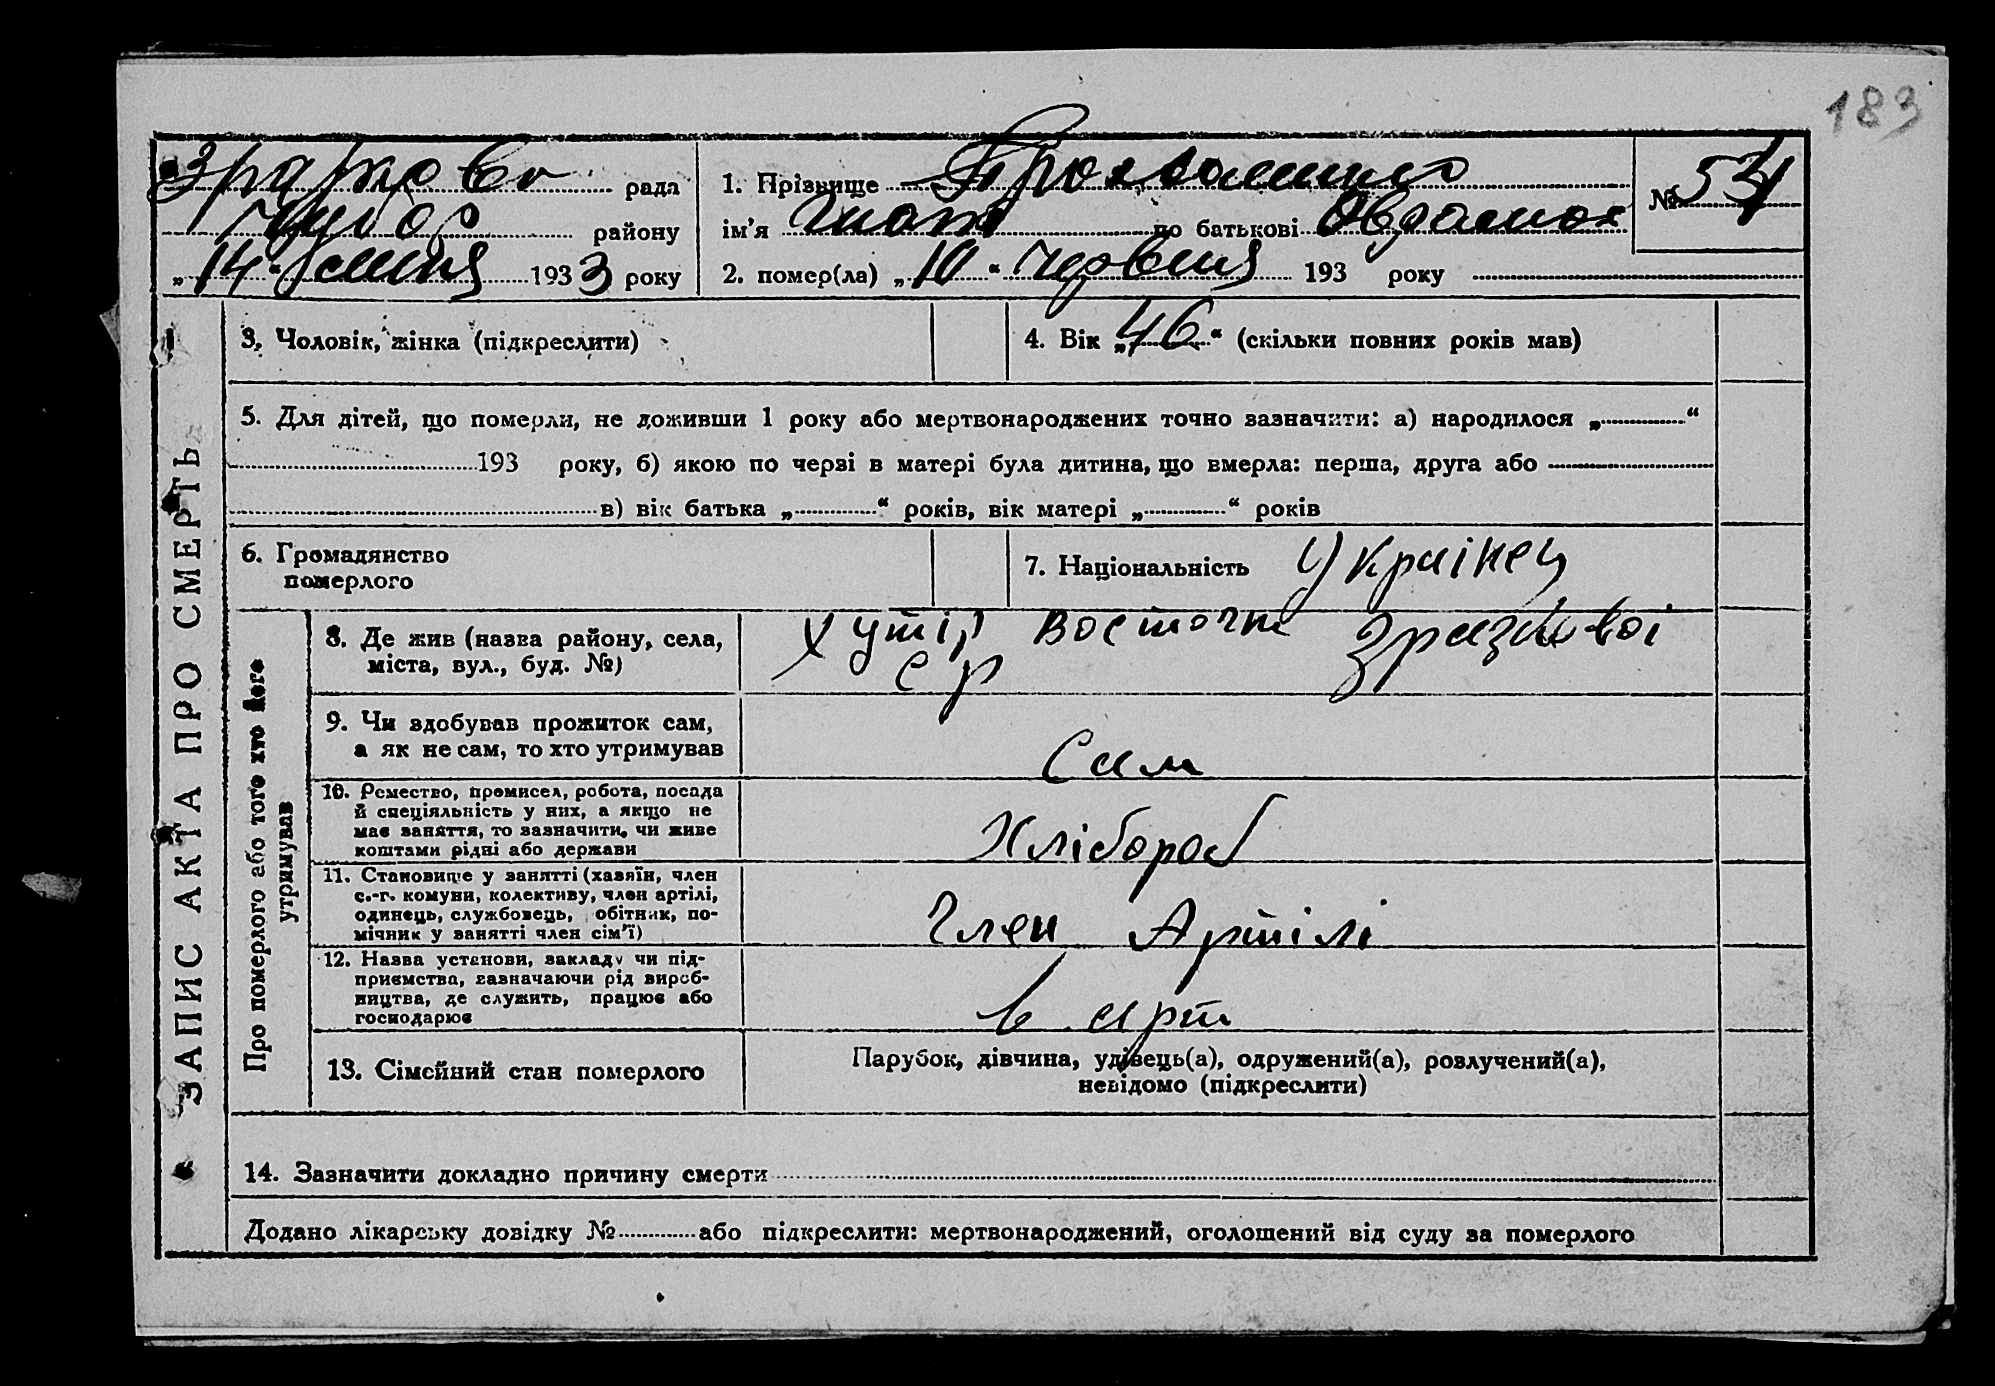 183
рада
1. Прізвище
№ 54
району
ім'я по батькові
„14“ 1933 року
2. помер(ла) „10“ червня 193 року
ЗАПИС АКТА ПРО СМЕРТЬ
3. Чоловік, жінка (підкреслити)
4. Вік „46“ (скільки повних років мав)
5. Для дітей, що померли, не доживши 1 року або мертвонароджених точно зазначити: а) народилося „ “
193 року, б) якою по черзі в матері була дитина, що вмерла: перша, друга або
в) вік батька „ “ років, вік матері „ “ років
6. Громадянство
померлого
7. Національність Українец
Про померлого або того хто його
утримував
8. Де жив (назва району, села,
міста, вул., буд. №)
Хутір Восточн Зразковоі
с р
9. Чи здобував прожиток сам,
а як не сам, то хто утримував
Сам
10. Ремество, промисел, робота, посада
й спеціяльність у них, а якщо не
має заняття, то зазначити, чи живе
коштами рідні або держави
Хлібороб
11. Становище у занятті (хазяїн, член
с.-г. комуни, колективу, член артілі,
одинець, службовець, обітник, по-
мічник у занятті член сім'ї)
Член Артілі
12. Назва установи, закладу чи під-
приємства, зазначаючи рід вироб-
ництва, де служить, працює або
господарює
в арт
13. Сімейний стан померлого
Парубок, дівчина, удівець(а), одружений(а), розлучений(а),
невідомо (підкреслити)
14. Зазначити докладно причину смерти
Додано лікарську довідку № або підкреслити: мертвонароджений, оголошений від суду за померлого